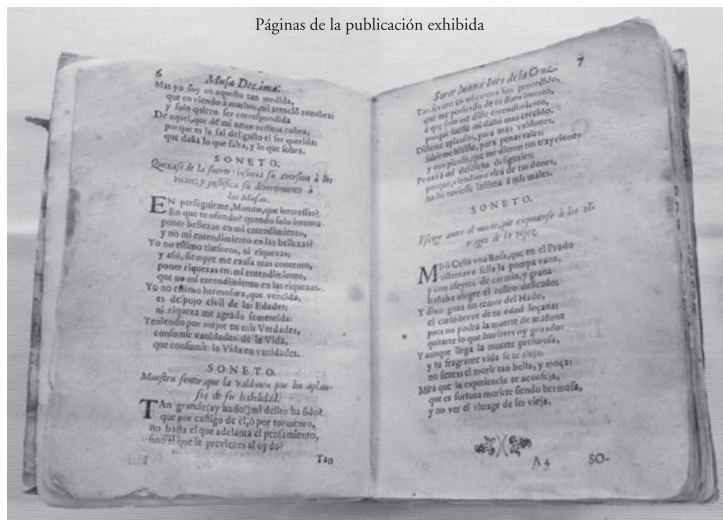 Páginas de la publicación exhibida
6
Musa Dezima.
Mas yo soy en aquesto tan medida,
que en viendo à muchos, mi atenció zozobra;
y solo quiero ser correspondida
De aquel, que de mi amor cobra;
porque es la sal del gusto el ser querida:
que daña lo que falta, y lo que sobra.
SONETO.
Quexase de la suerte: insinua su aversion à los
vicios, y justifica su divertimiento à
las Musas.
EN perseguirme, Mundo, que interessas?
En que te ofendo? quando solo intento
poner bellezas en mi entendimiento,
y no mi entendimiento en las bellezas?
Yo no estimo thesoros, ni riquezas;
y assi, siempre me causa mas contento,
poner riquezas en mi entendimiento,
que no mi entendimiento en las riquezas.
Yo no estimo hermosura, que vencida,
es despojo civil de las Edades;
ni riqueza me agrada fementida:
Teniendo por mejor en mis Verdades,
consumir vanidades de la Vida,
que consumir la Vida en vanidades.
SONETO.
Muestra sentir, que la valdonen por los aplau-
sos de su habilidad.
TAn grande (ay hado!) mi delito ha sido?
que por castigo de èl, ò por tormento,
no basta el que adelanta el pensamiento,
sino el que le previenes al oydo?
Tan
7
Soror Juana Ines de la Cruz.
Tan severo en mi contra has procedido,
que me persuado de tu duro intento,
à que solo me diste entendimiento,
porque fuesse mi daño mas crecido.
Disteme aplausos, para mas valdones,
subirme hiziste, para penas tales;
y aun pienso, que me dieron tus trayciones
Penas à mi desdicha desiguales;
porque, viendome rica de tus dones,
nadie tuviesse lastima à mis males.
SONETO.
Escoge antes el morir, que exponerse à los ul-
trages de la vejez.
MIrò Celia vna Rosa, que en el Prado
ostentava feliz la pompa vana,
y con afeytes de carmin, y grana
bañaba alegre el rostro delicado;
Y dixo: goza sin temor del Hado,
el curso breve de tu edad loçana:
pues no podrà la muerte de mañana
quitarte lo que huvieres oy gozado:
Y aunque llega la muerte presurosa,
y tu fragrante vida se te aleja;
no sientas el morir tan bella, y moça:
Mira que la experiencia te aconseja,
que es fortuna morirte siendo hermosa,
y no ver el vltrage de ser vieja.
A4
SO-